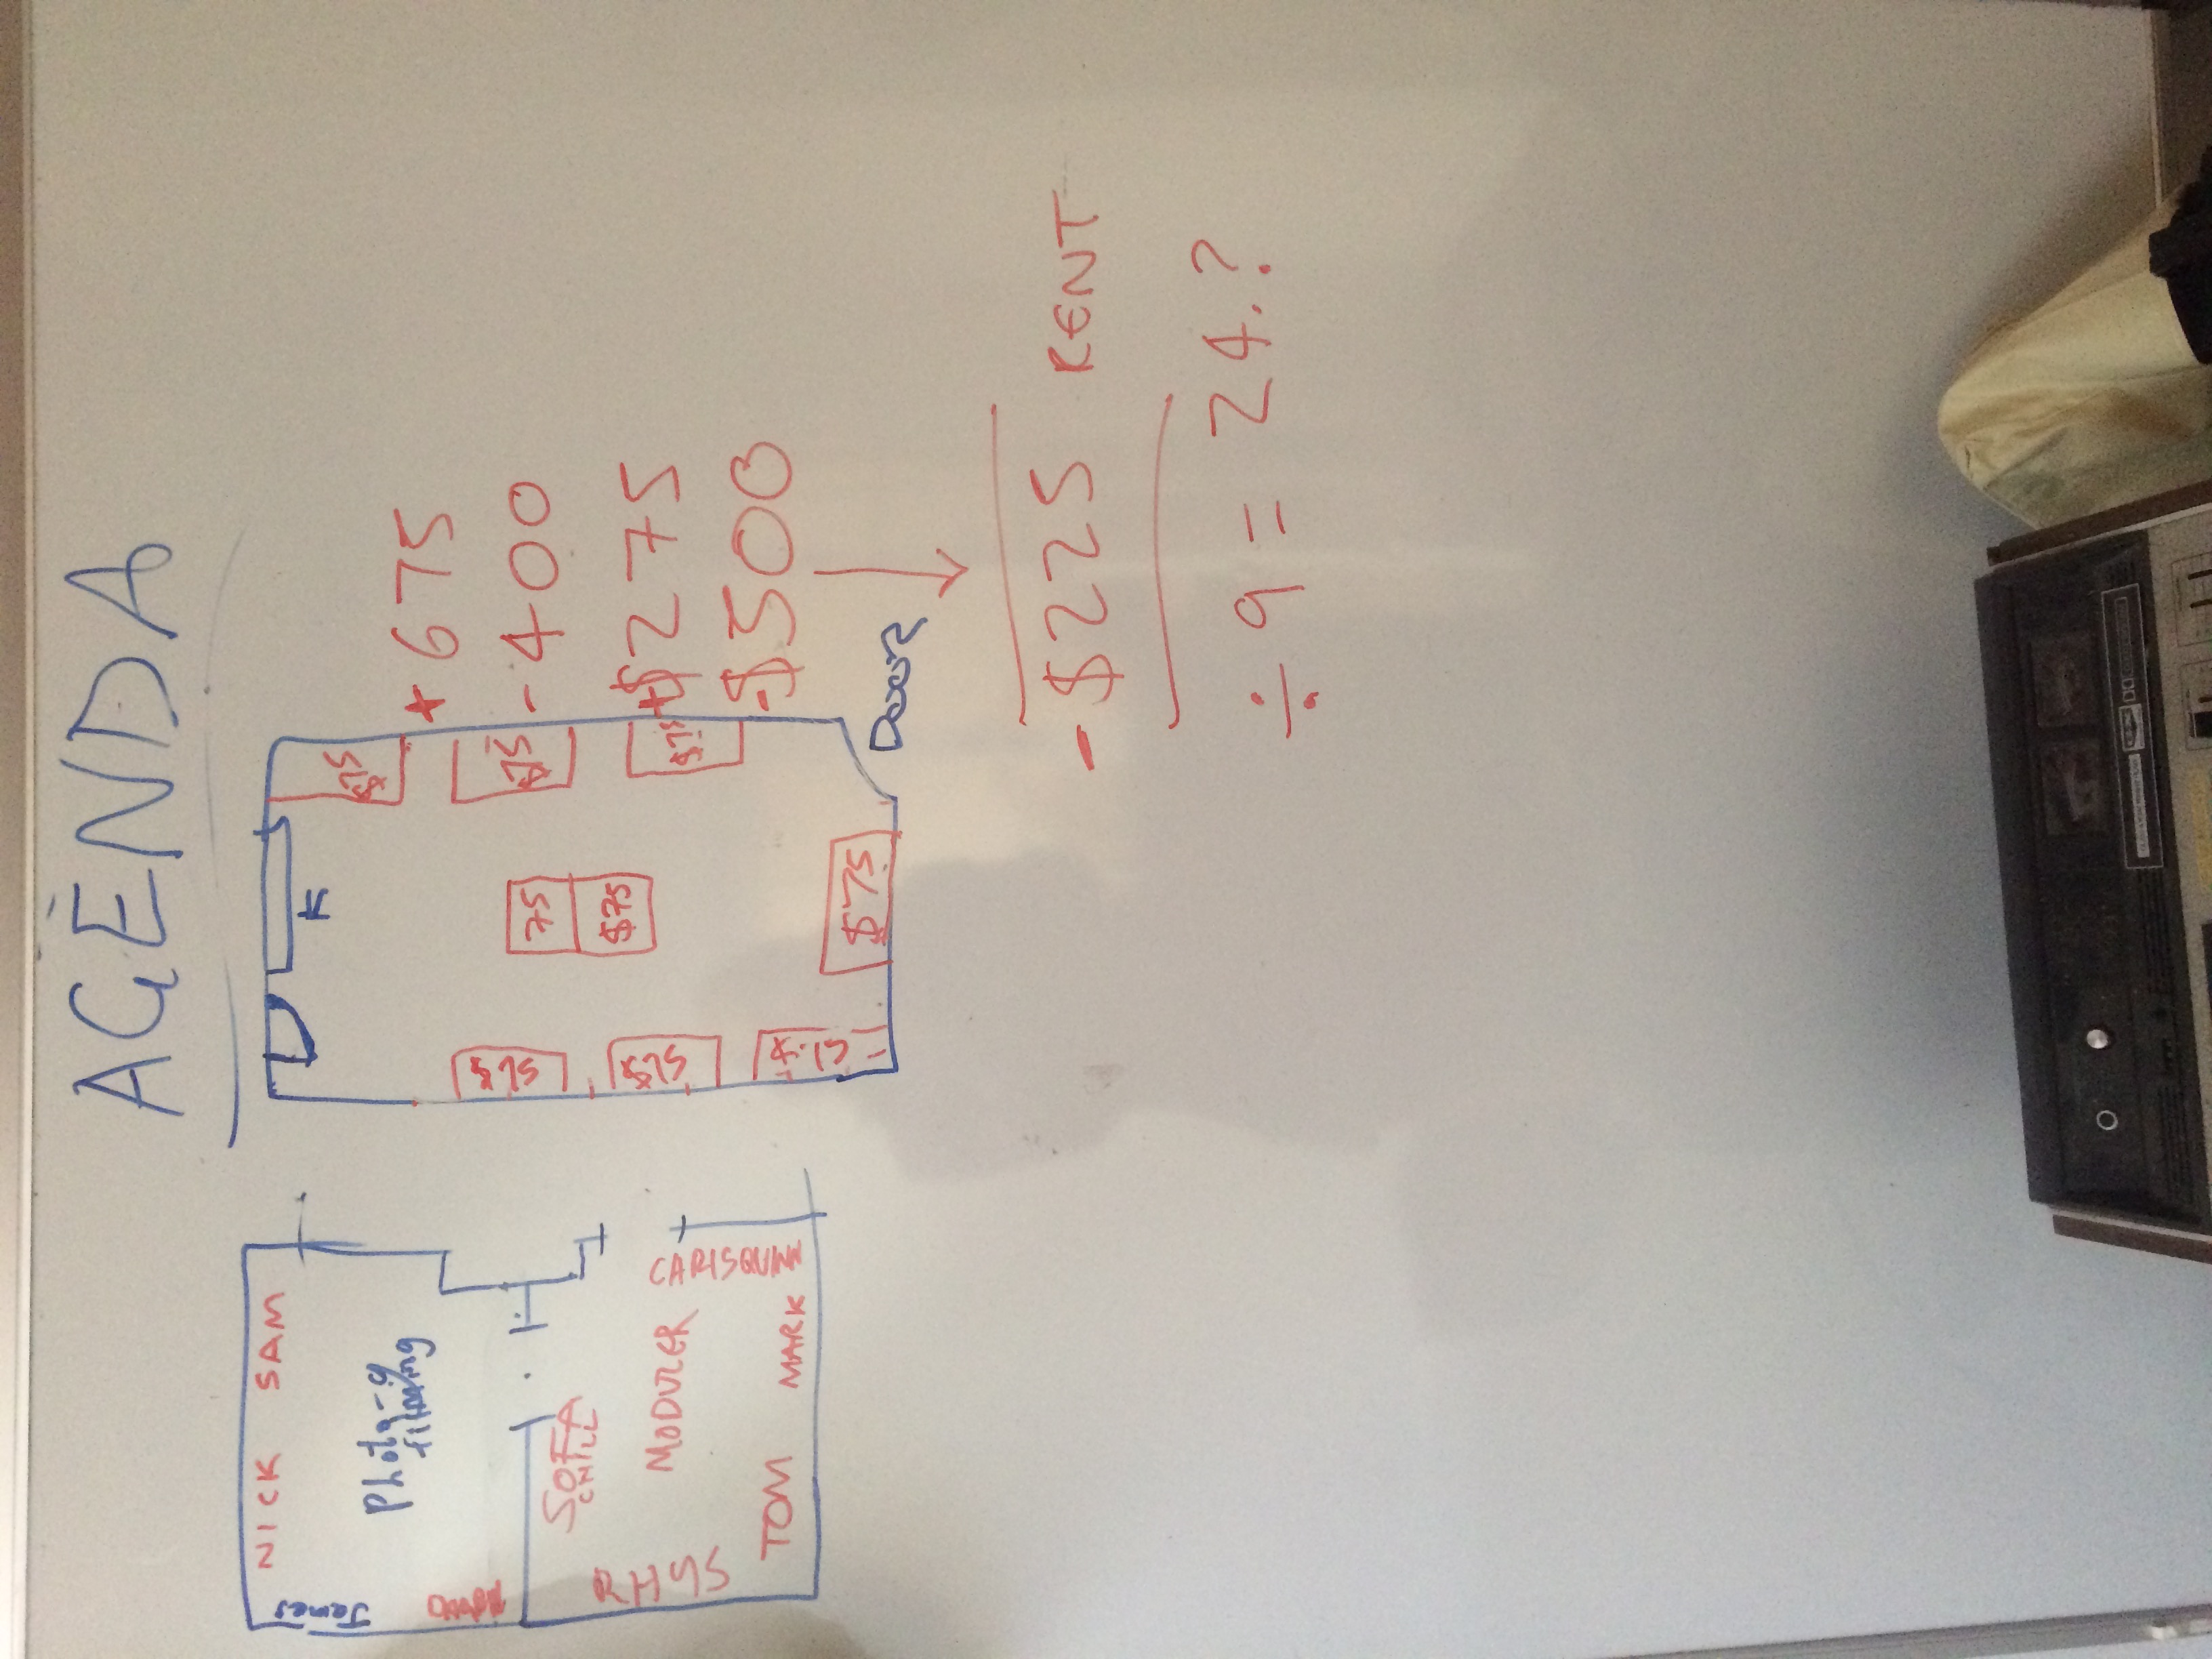 AGENDA
NICK SAM
James
Photo-g
filming
SOFA
CHILL
MODULER
RHYS
CARIS QUINN
TOM MARK
K
$75
$75
$75
75
$75
$75
$75
$75
$75
Door
+ 675
- 400
+$275
-$500
- $225 RENT
÷ 9 = 24.?